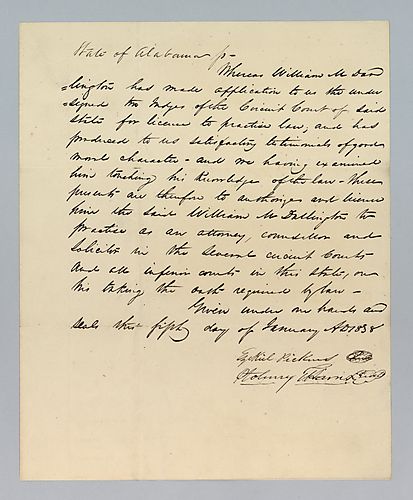 State of Alabama
Whereas William M Dar
=lington has made application to us the under
=signed two Judges of the Circuit Court of said
State for licence to practise law, and has
produced to us satisfactory testimonials of good
moral character - and we having examined
him touching his knowledge of the law - these
presents are therefore to authorize and licence
him the said William M Darlington to
practice as an attorney, councellor and
solicitor in the several circuit Courts
and all inferior courts in this state, on
his taking the oath required by law -
Given under our hands and
seals this fifth day of January AD 1838
Ezekiel Pickens Seal
Seal